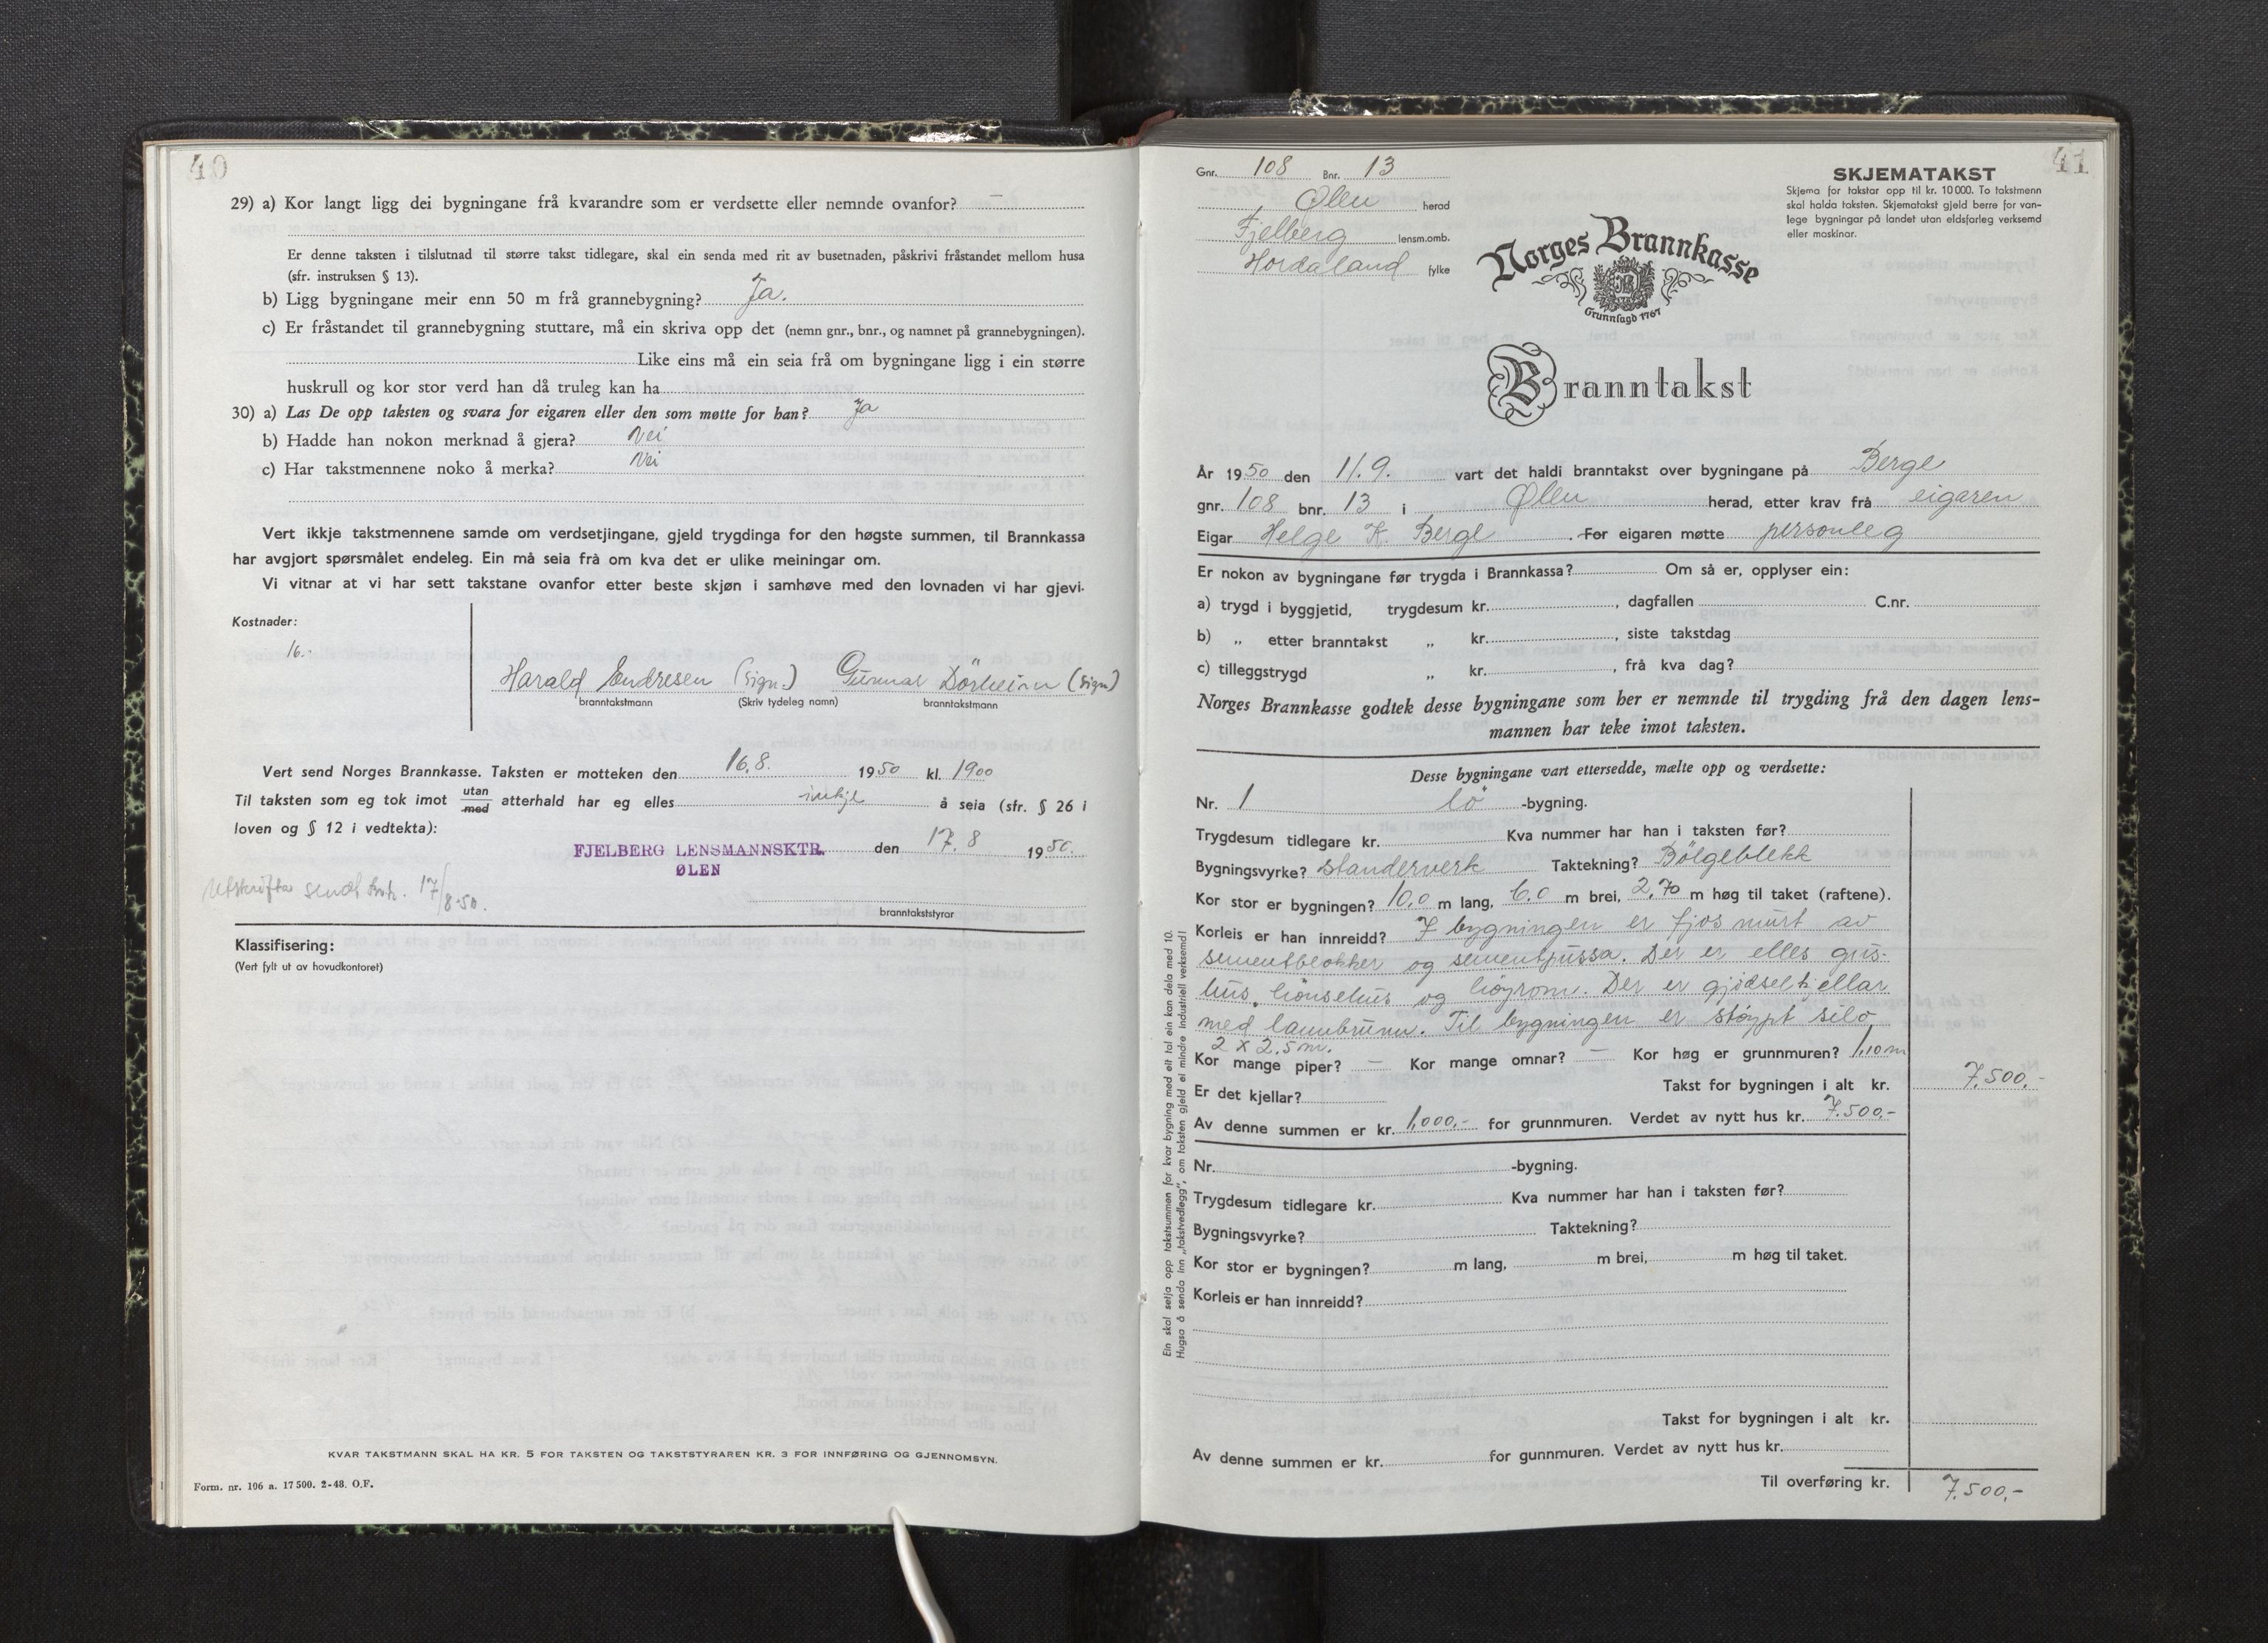 40
29) a) Kor langt ligg dei bygningane frå kvarandre som er verdsette eller nemnde ovanfor? —
Er denne taksten i tilslutnad til større takst tidlegare, skal ein senda med rit av busetnaden, påskrivi fråstandet mellom husa
(sfr. instruksen § 13).
b) Ligg bygningane meir enn 50 m frå grannebygning? Ja.
c) Er fråstandet til grannebygning stuttare, må ein skriva opp det (nemn gnr., bnr., og namnet på grannebygningen).
Like eins må ein seia frå om bygningane ligg i ein større
huskrull og kor stor verd han då truleg kan ha
30) a) Las De opp taksten og svara for eigaren eller den som møtte for han? Ja
b) Hadde han nokon merknad å gjera? Nei
c) Har takstmennene noko å merka? Nei
Vert ikkje takstmennene samde om verdsetjingane, gjeld trygdinga for den høgste summen, til Brannkassa
har avgjort spørsmålet endeleg. Ein må seia frå om kva det er ulike meiningar om.
Vi vitnar at vi har sett takstane ovanfor etter beste skjøn i samhøve med den lovnaden vi har gjevi.
Kostnader:
16.-
Harald Endresen (sign) Gunnar Dörheim (sign)
branntakstmann (Skriv tydeleg namn) branntakstmann
Vert send Norges Brannkasse. Taksten er motteken den 16.8. 1950 kl. 1900
Til taksten som eg tok imot utan/med atterhald har eg elles inkje å seia (sfr. § 26 i
loven og § 12 i vedtekta):
FJELBERG LENSMANNSKTR. den 17.8 1950.
ØLEN
Utskrifter sendt 17/8-50.
branntakststyrar
Klassifisering:
(Vert fylt ut av hovudkontoret)
KVAR TAKSTMANN SKAL HA KR. 5 FOR TAKSTEN OG TAKSTSTYRAREN KR. 3 FOR INNFØRING OG GJENNOMSYN.
Form. nr. 106 a. 17 500. 2-48. O.F.
41
Gnr. 108 Bnr. 13
Ølen herad
Fjelberg lensm.omb.
Hordaland fylke
SKJEMATAKST
Skjema for takstar opp til kr. 10 000. To takstmenn
skal halda taksten. Skjematakst gjeld berre for van-
lege bygningar på landet utan eldsfarleg verksemd
eller maskinar.
Norges Brannkasse
Grunnlagd 1767
Branntakst
År 1950 den 11.9. vart det haldi branntakst over bygningane på Berge
gnr. 108 bnr. 13 i Ølen herad, etter krav frå eigaren
Eigar Helge K. Berge. For eigaren møtte personleg
Er nokon av bygningane før trygda i Brannkassa? Om så er, opplyser ein:
a) trygd i byggjetid, trygdesum kr. , dagfallen C.nr.
b) „ etter branntakst „ kr. , siste takstdag
c) tilleggstrygd „ kr. , frå kva dag?
Norges Brannkasse godtek desse bygningane som her er nemnde til trygding frå den dagen lens-
mannen har teke imot taksten.
Desse bygningane vart ettersedde, mælte opp og verdsette:
Nr. 1 lö -bygning.
Trygdesum tidlegare kr. Kva nummer har han i taksten før?
Bygningsvyrke? standerverk Taktekning? Bölgeblekk
Kor stor er bygningen? 10,0 m lang, 6,0 m brei, 2,70 m høg til taket (raftene).
Korleis er han innreidd? I bygningen er fjos murt av
sementblokker og sementpussa. Der er elles gris-
hus, hönsehus og höyrom. Der er gjödselkjellar
med landbrunn. Til bygningen er støypt silo
2 x 2.5m.
Kor mange piper? — Kor mange omnar? — Kor høg er grunnmuren? 1,10 m
Er det kjellar? Takst for bygningen i alt kr. 7.500,-
Av denne summen er kr. 1,000,- for grunnmuren. Verdet av nytt hus kr. 7.500,-
Nr. -bygning.
Trygdesum tidlegare kr. Kva nummer har han i taksten før?
Bygningsvyrke? Taktekning?
Kor stor er bygningen? m lang, m brei, m høg til taket.
Korleis er han innreidd?
Takst for bygningen i alt kr.
Av denne summen er kr. for gunnmuren. Verdet av nytt hus kr.
Til overføring kr. 7.500,-
Ein skal setja opp takstsummen for kvar bygning med eit tal ein kan dela med 10.
Hugsa å senda inn „takstvedlegg", om taksten gjeld ei mindre industriell verksemd!